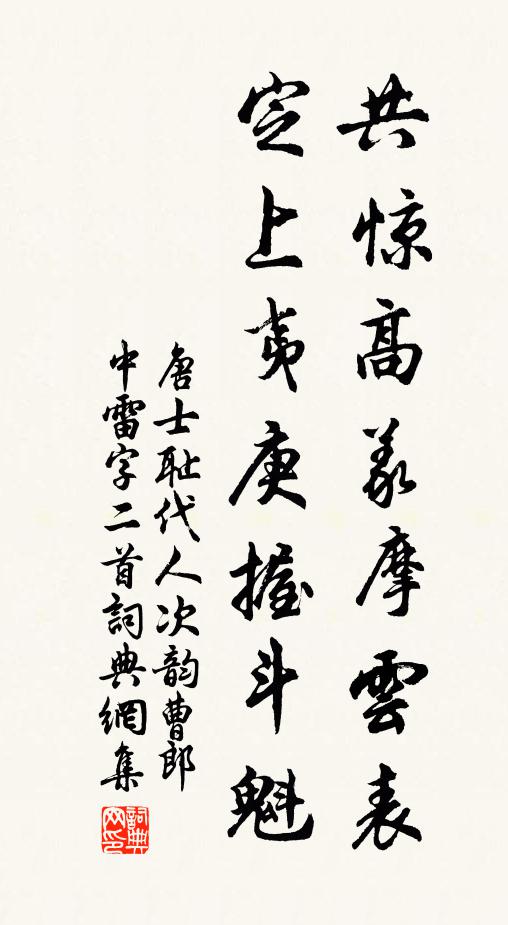 共惊高義摩雲表
定上夷庚握斗魁
唐士耻代人次韵曹郎
中雷字二首詞典網集
詞典网印